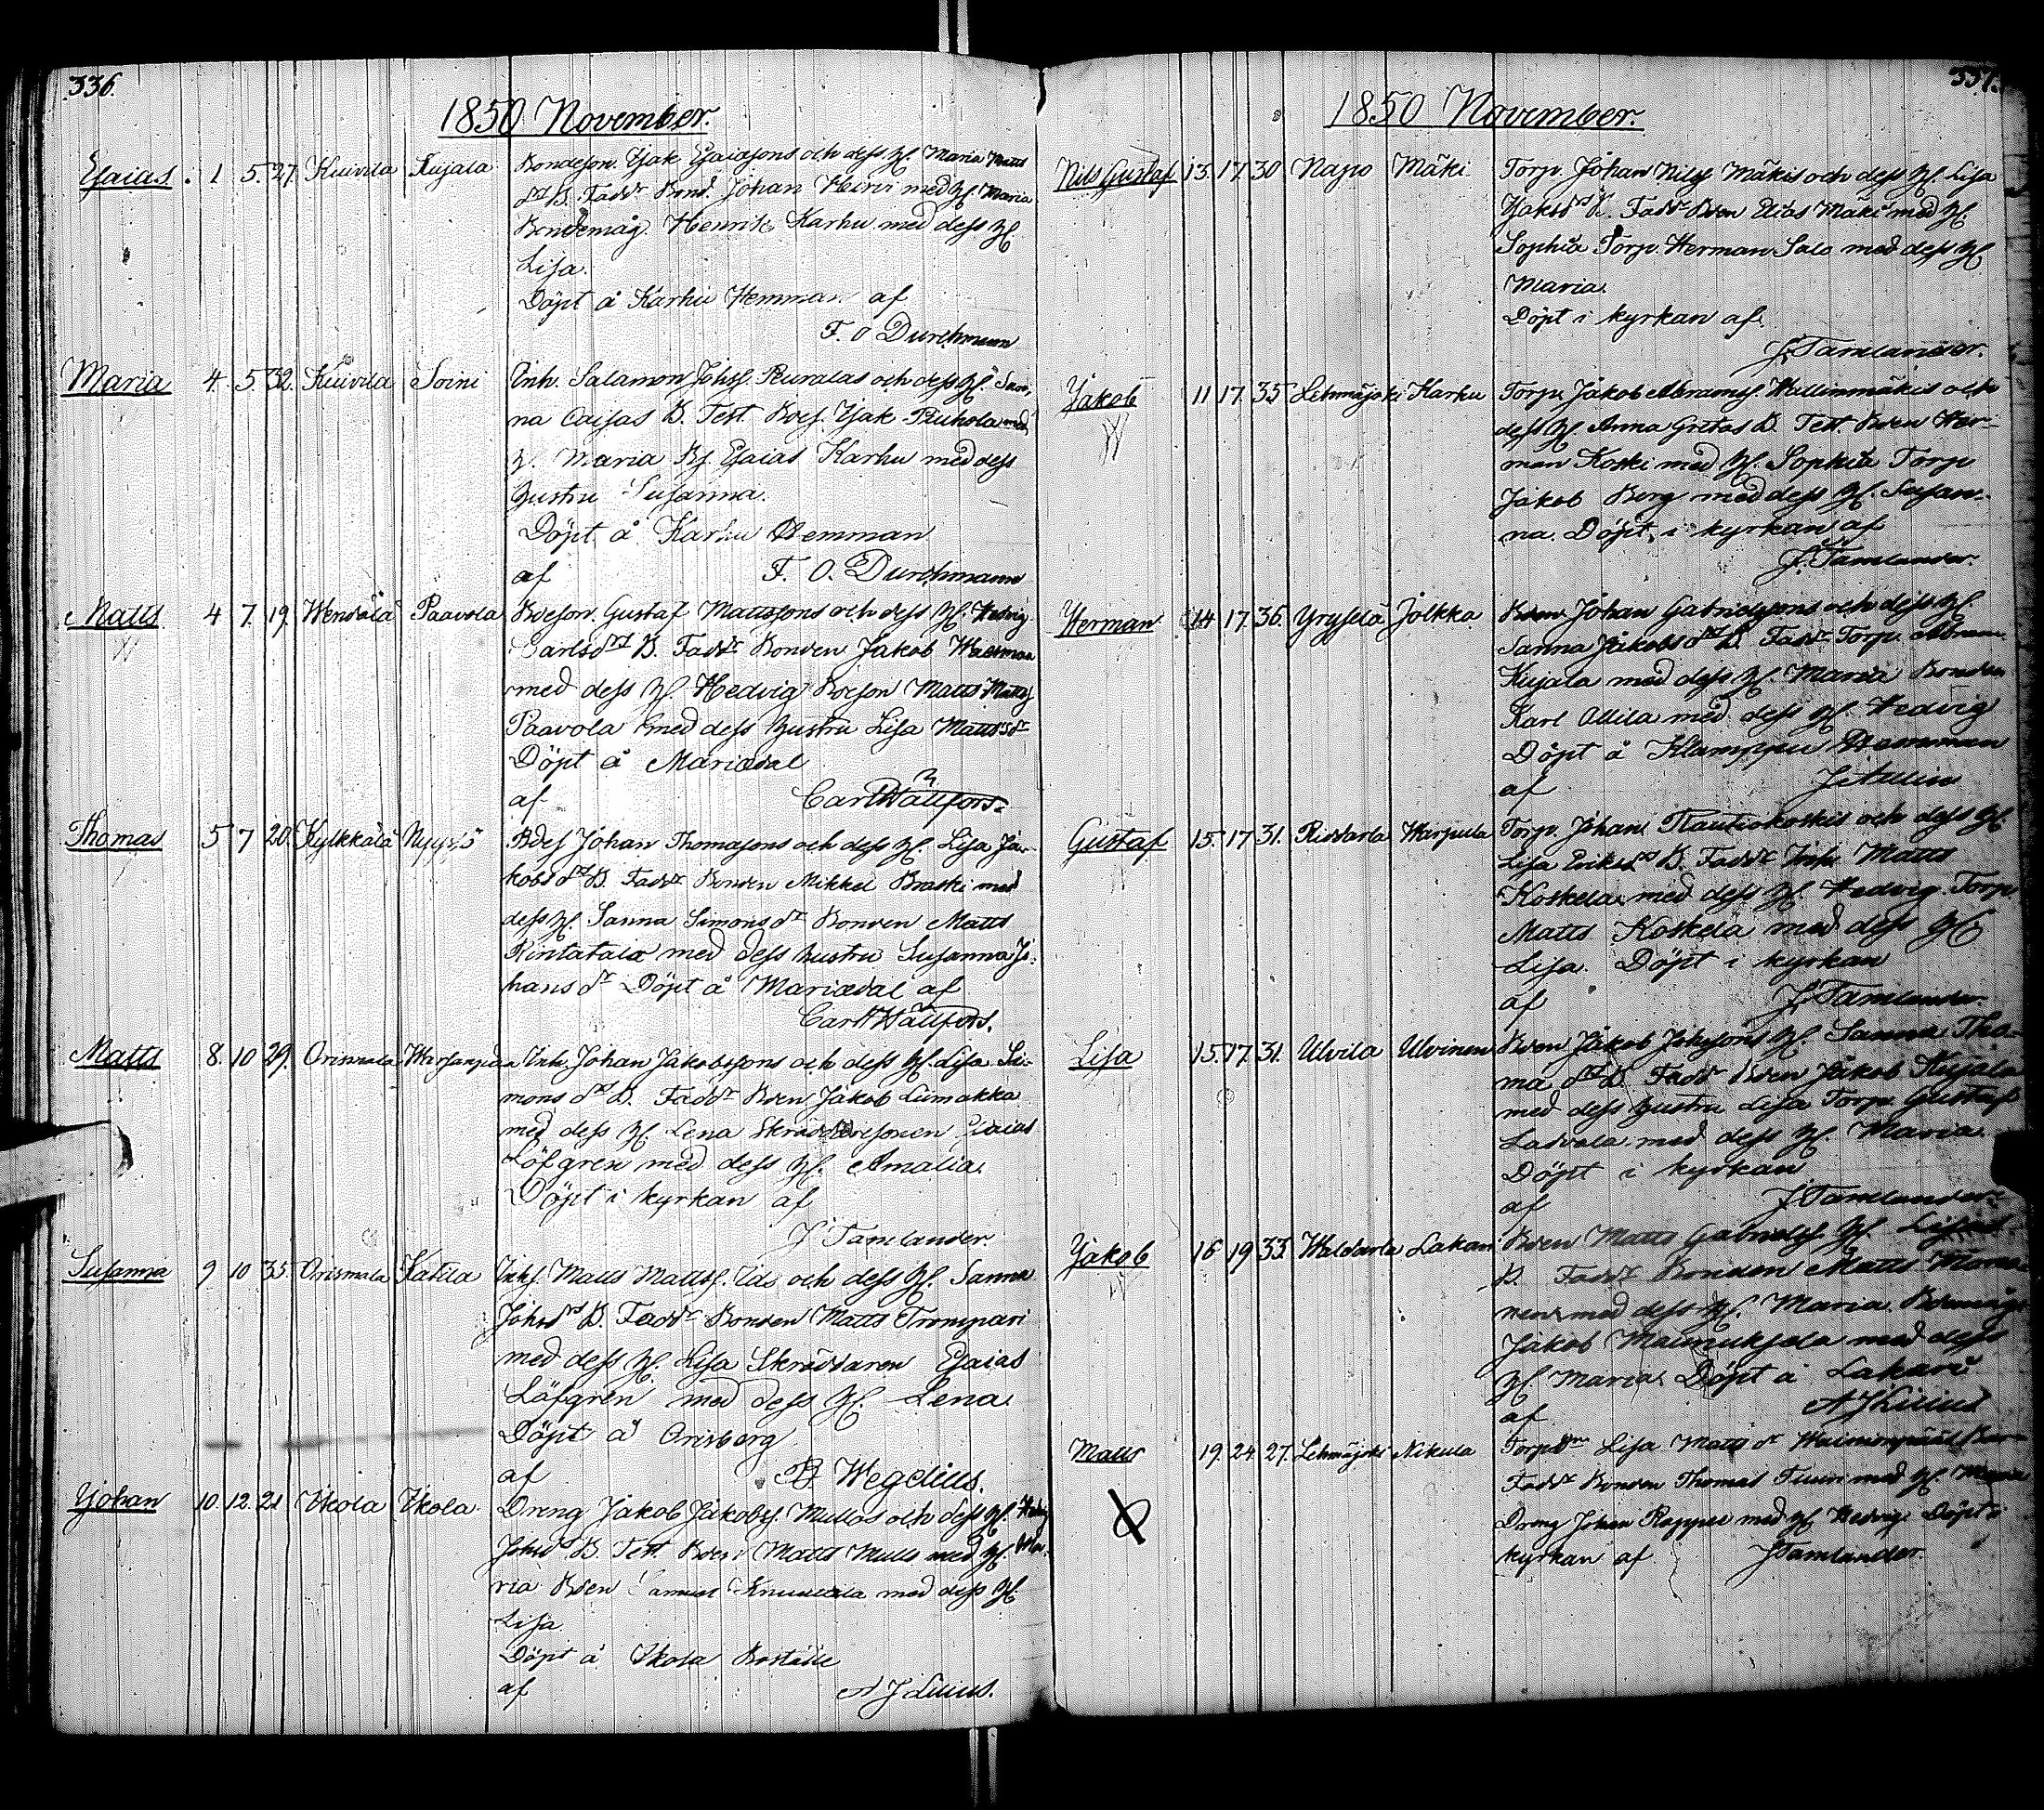 336.
1850 November.
Esaias. 1 5. 27. Kuivila Kujala Bondeson. Isak Esaiæsons och dess H. Maria Matts
drs B. Fadd. Bond. Johan Heirvi med H. Maria
Bondemåg. Henrik Karhu med dess H.
Lisa.
Döpt å Karhu Hemman af
F. O Durchmann
Maria 4. 5. 32. Kuivila Soini Inh. Salamon Johss. Peuralas och dess H. San,
na Caisas B. Test. Bdes. Isak Ruhola med
H. Maria Bs. Esaias Karhu med dess
hustru Susanna.
Döpt å Karhu Hemman
af F. O. Durchmann
Matts 4 7. 19. Wendälä Paavola Bdeson. Gustaf Mattssons och dess H. Hedvig
Carlsdrs B. Faddr Bonden Jakob Waismaa
med dess H. Hedvig Bdeson Matts Matts
Paavola med dess hustru Lisa Mattsdr
Döpt å Mariædal
af Carl Wällfors.
Thomas 5 7 20. Kylkkälä Nyyssö Bdes Johan Thomasons och dess H. Lisa Ja-
kobsdrs B. Faddr Bonden Mikkel Braski med
dess H. Sanna Simonsdr Bonden Matts
Rintatala med dess hustru Susanna Jo-
hansdr Döpt å Mariædal af
Carl Wällfors.
Matts 8. 10 29. Orismala Warsanpää Inh. Johan Jakobssons och dess H. Lisa Si-
monsdrs B. Faddr Bden Jakob Liimakka
med dess H. Lena Skräddaresonen Esaias
Löfgren med dess H. Amalia.
Döpt i kyrkan af
J Tamlander.
Susanna 9 10 35 Orismala Katila Inhs. Matts Mattss. Idas och dess H. Sanna
Johsdrs B. Faddr Bonden Matts Trompari
med dess H. Lisa Skräddaren Esaias
Löfgren med dess H. Lena.
Döpt å Orisberg
af B Wegelius.
Johan 10. 12. 21 Ikola Ikola. Dreng Jakob Jakobss. Mullos och dess H. Hedvig
Johsdrs B. Test. Bden Matts Mullo med H. Ma-
ria Bden Samuel Knuuttila med dess H
Lisa
Döpt å Ikola Boställe
af A J Lilius.
337.
1850 November.
Nils Gustaf 13. 17. 30 Napo Mäki Torp. Johan Nilss Mäkis och dess H. Lisa
Jakobsdrs B. Faddr Bden Elias Mäki med H.
Sophia Torp. Herman Salo med dess H
Maria.
Döpt i kyrkan af
J. Tamlander.
Jakob 11 17. 35 Lehmäjoki Karhu Torp. Jakob Abramss. Hallinmäkis och
dess H. Anna Gretas B. Test. Bden Her-
man Koski med H. Sophia Torp
Jakob Berg med dess H. Susan-
na. Döpt i kyrkan af
J. Tamlander.
Herman 14 17. 36. Yrysselä Jolkka Bden Johan Gabrielssons och dess H.
Sanna Jakobsdrs B. Faddr Torp. Abram
Kujala med dess H. Maria Bonden
Karl Ollila med dess H. Hedvig
Döpt å Klamppu Hemman
af
Gustaf 15. 17 31. Riddarla Warpula Torp. Johan Rautiokoskis och dess H
Lisa Eriksdrs B. Faddr Inhs Matts
Koskela med dess H. Hedvig Torp
Matts Koskela med dess H
Lisa. Döpt i kyrkan
af J. Tamlander.
Lisa 15. 17. 31. Ulvila Ulvinen Bden Jakob Johssons H. Sanna Tho-
ma drs B. Faddr Bden Jakob Kujala
med dess hustru Lisa Torp Gustaf
Ladvala med dess H. Maria.
Döpt i kyrkan
af J Tamlander.
Jakob 16 19 33. Waldarla Lakari Bden Matts Gabrielss H. Lisas
B. Faddr Bonden Matts
med dess H. Maria Bdemåg
Jakob med dess
H. Maria. Döpt å Lakari
af A J Lilius
Matts 19. 24 27. Lehmäjoki Nikula Lisa Mattsdr
Faddr Bonden Thomas Tuuri med H. Maria
Dreng Johan med H Hedvig Döpt i
kyrkan af J Tamlander.